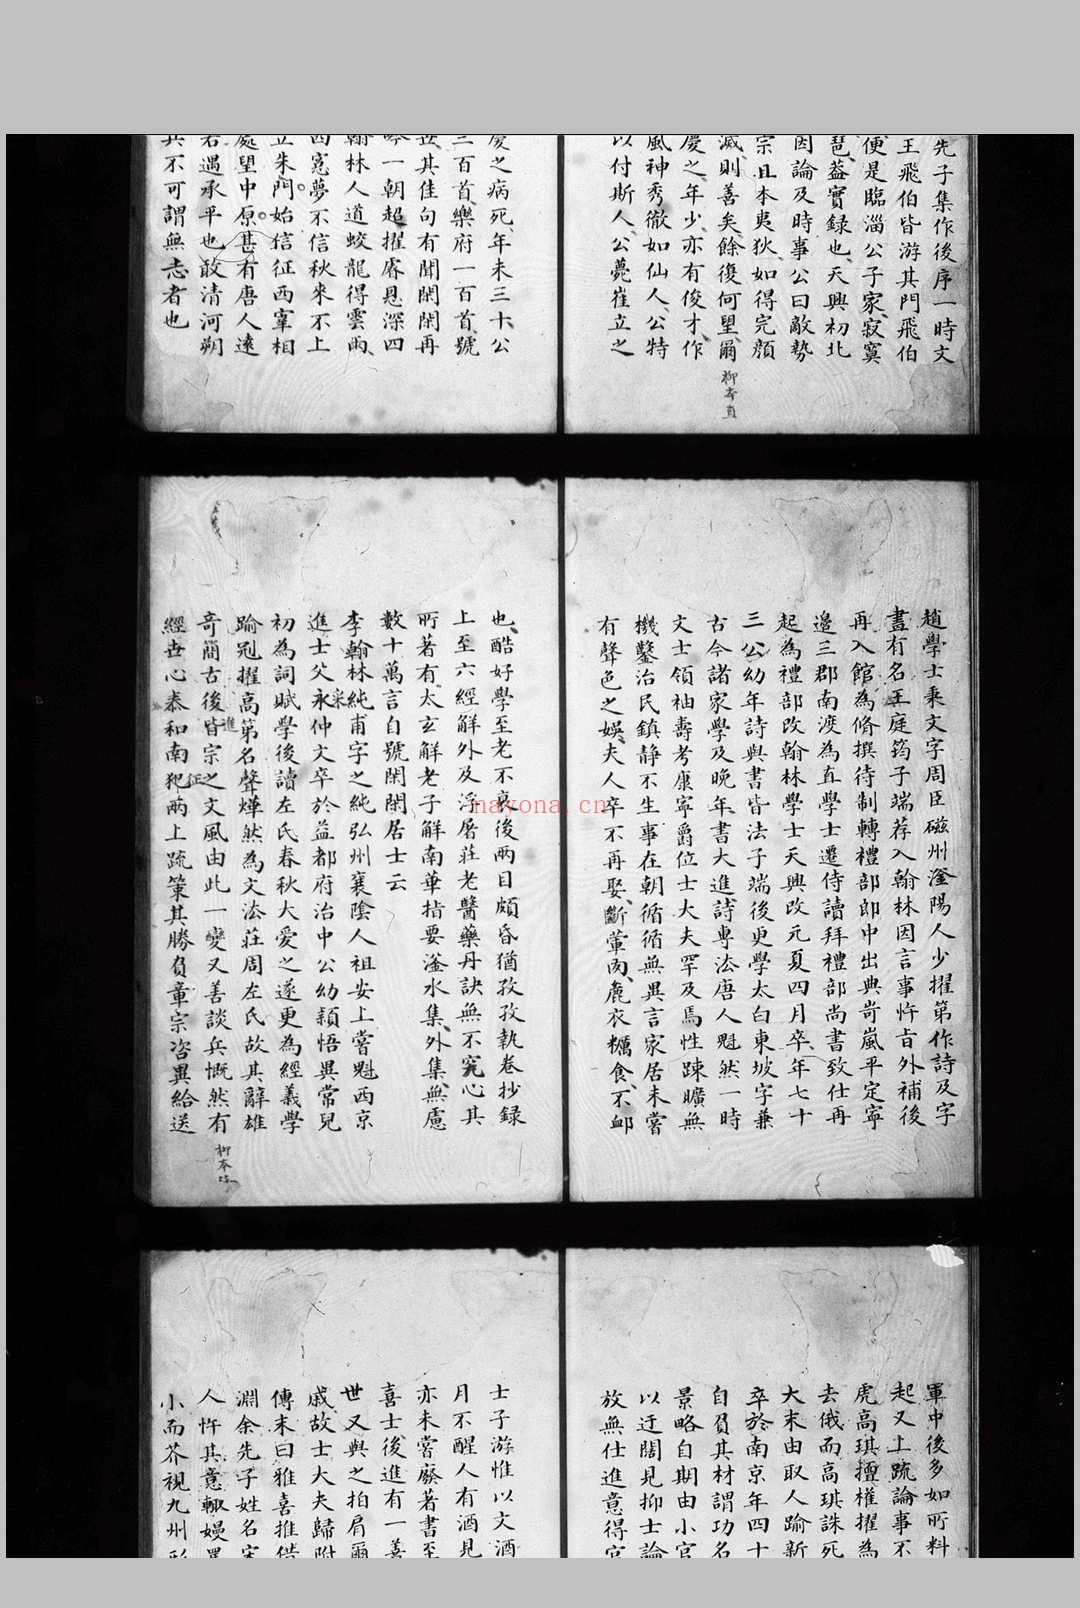 先子集作後序一時文
王飛伯皆游其門飛伯
便是臨淄公子家寂寞
琶蓋實録也天興初北
因論及時事公曰敵勢
宗且本夷狄如得完顔
滅則善矣餘復何望爾
慶之年少亦有俊才作
風神秀徹如仙人公特
以付斯人公薨崔立之
慶之病死年未三十公
三百首樂府一百首號
世其佳句有閒閑閑再
吟一朝超擢睿恩深四
翰林人道蛟龍得雲雨
西窓夢不信秋來不上
立朱門始信征西宰相
處望中原甚有唐人遠
若遇承平也敢清河朔
其不可謂無志者也
趙學士秉文字周臣磁州滏陽人少擢第作詩及字
畫有名王庭筠子端荐入翰林因言事忤旨外補後
再入館為脩撰待制轉禮部郎中出典岢嵐平定寧
邉三郡南渡為直學士遷侍讀拜禮部尚書致仕再
起為禮部改翰林學士天興改元夏四月卒年七十
三公幼年詩與書皆法子端後更學太白東坡字兼
古今諸家學及晚年書大進詩專法唐人魁然一時
文士領袖壽考康寧爵位士大夫罕及焉性踈曠無
機鑿治民鎮静不生事在朝循循無異言家居未嘗
有聲色之娛夫人卒不再娶斷葷肉麁衣糲食不䘏
也酷好學至老不衰後兩目頗昏猶孜孜執卷抄録
上至六經解外及浮屠莊老醫藥丹訣無不究心其
所著有太玄解老子解南華指要滏水集外集無慮
數十萬言自號閑閑居士云
李翰林純甫字之純弘州襄陰人祖安上嘗魁西京
進士父永仲文卒於益都府治中公幼穎悟異常兒
采
初為詞賦學後讀左氏春秋大愛之遂更為經義學
踰冠擢高第名聲燁然為文法莊周左氏故其辭雄
奇簡古後皆宗之文風由此一變又善談兵慨然有
進
經世心泰和南犯兩上疏策其勝負章宗咨異給送
征
軍中後多如所料
起又上疏論事不
虎高琪擅權擢為
去俄而高琪誅死
大末由取人踰新
卒於南京年四十
自負其材謂功名
景略自期由小官
以迂闊見抑士論
放無仕進意得官
士子游惟以文酒
月不醒人有酒見
亦未嘗廢著書至
喜士後進有一善
世又與之拍肩爾
戚故士大夫歸附
傳末曰雅喜推借
淵余先子姓名宋
人忤其意輙嫚罵
小而芥視九州形
nayona.cn